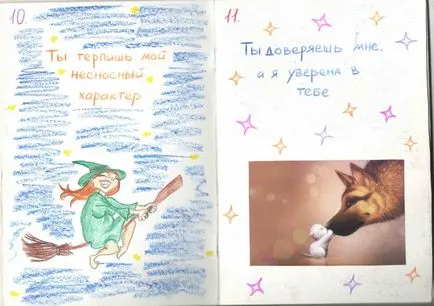 10.
Ты терпишь мой
несносный
характер
11.
Ты доверяешь мне,
а я уверена в
тебе